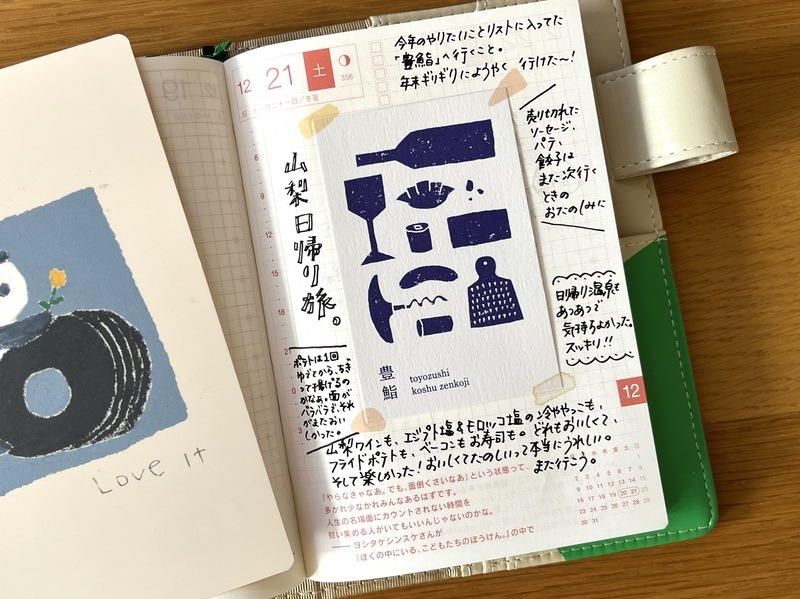 Love it
12 21 土 356
日 十一月二十一日／冬至
今年のやりたいことリストに入ってた
「豊鮨」へ行くこと。
年末ギリギリにようやく行けた〜!
山梨日帰り旅。
売り切れた
ソーセージ、
パテ、
餃子は
また次行く
ときの
おたのしみに
豊鮨
toyozushi
koshu zenkoji
日帰り温泉も
あつあつで
気持ちよかった。
スッキリ!!
ポテトは1回
ゆでてから、ちぎ
って揚げるの
かなぁ。面が
バラバラで、それ
がまたおい
しかった。
山梨ワインも、エジプト塩&モロッコ塩の冷ややっこも、
フライドポテトも、ベーコンもお寿司も。どれもおいしくて、
そして楽しかった!おいしくてたのしいって本当にうれしい。
また行こう。
12
「やらなきゃなあ。でも、面倒くさいなあ」という状態って、
多かれ少なかれみんなあるはずです。
人生の名場面にカウントされない時間を
拾い集める人がいてもいいんじゃないのかな。
──ヨシタケシンスケさんが
『ぼくの中にいる、こどもたちのぼうけん。』の中で
月 火 水 木 金 土 日
1
2 3 4 5 6 7 8
9 10 11 12 13 14 15
16 17 18 19 20 21 22
23 24 25 26 27 28 29
30 31